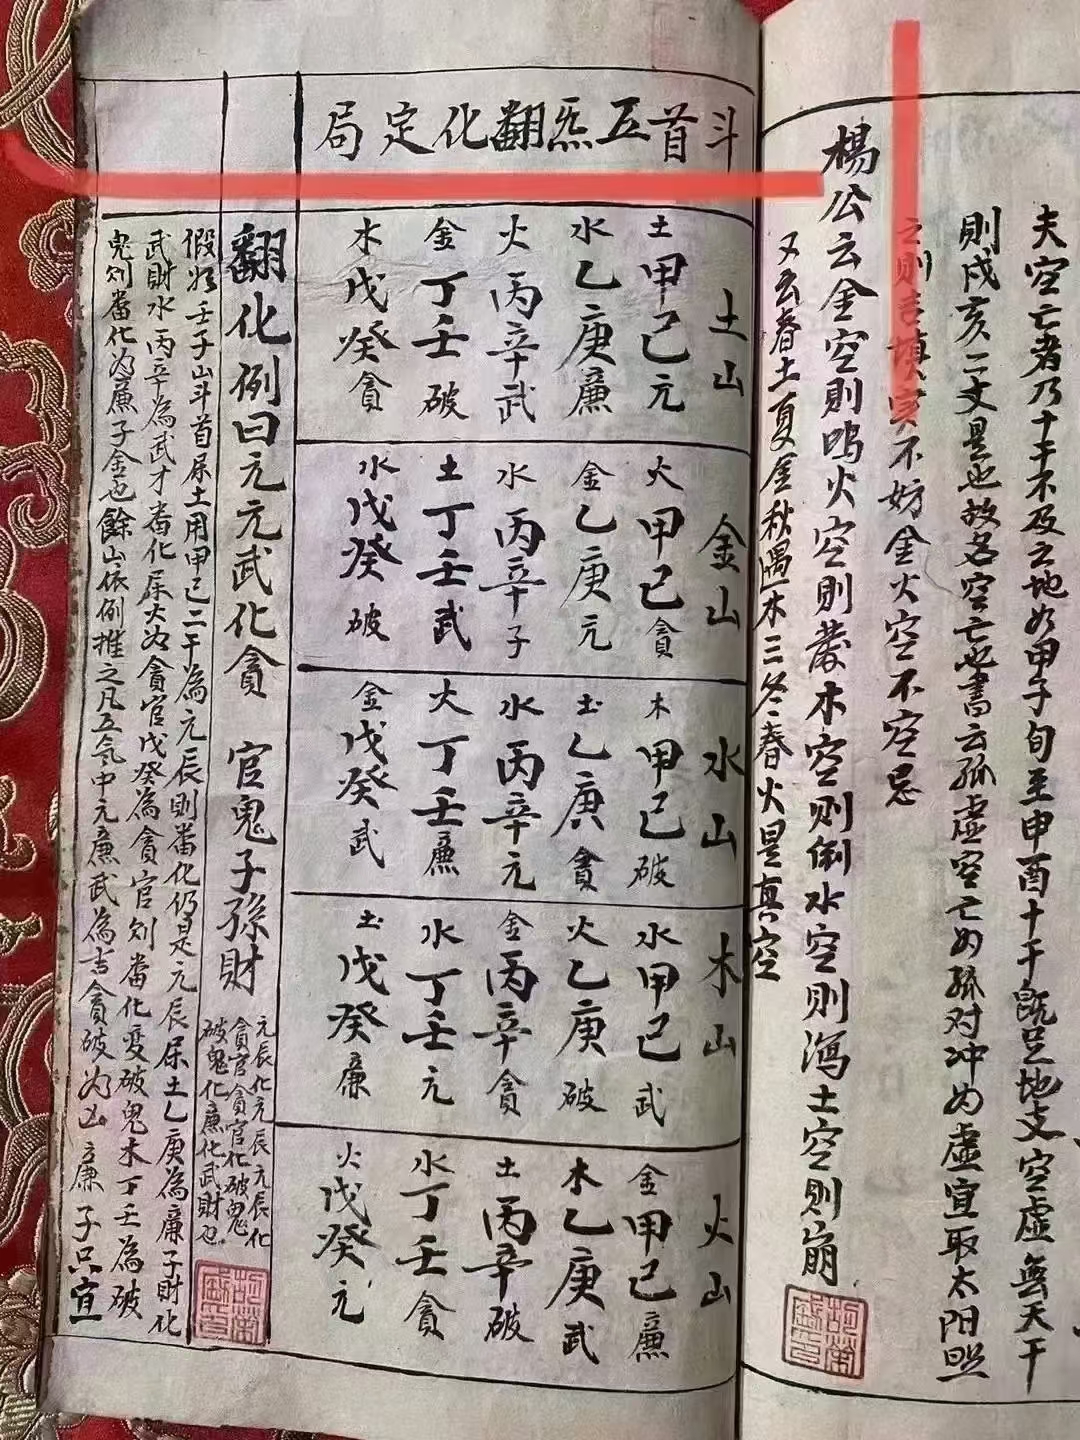 夫空亡者乃十干不及之地如甲子旬至申酉十干既足地支空虛無天干
則戍亥二丈是也故名空亡也書云孤虛空亡如孤对冲为虛宜取太阳照
之則吉填实不妨金火空不空忌
楊公云金空則鸣火空則發木空則倒水空則瀉土空則崩
又云春土夏金秋隅木三冬春火是真空
斗首五炁翻化定局
土山
土甲己元
水乙庚廉
火丙辛武
金丁壬破
木戊癸貪
金山
火甲己貪
金乙庚元
水丙辛子
土丁壬武
水戊癸破
水山
木甲己破
土乙庚貪
水丙辛元
火丁壬廉
金戊癸武
木山
水甲己武
火乙庚破
金丙辛貪
水丁壬元
土戊癸廉
火山
金甲己廉
木乙庚武
土丙辛破
水丁壬貪
火戊癸元
翻化例曰元元武化貪 官鬼子孫財
元辰化元辰元辰化
貪官貪官化破鬼
破鬼化廉化武財也
假如壬子山斗首屎土用甲己二干為元辰則畨化仍是元辰屎土乙庚為廉子財化
武財水丙辛為武才畨化屎火为貪官戊癸為貪官则畨化变破鬼木丁壬為破
鬼则畨化为廉子金也餘山依例推之凡五气中元廉武為吉貪破为凶廉子只宜